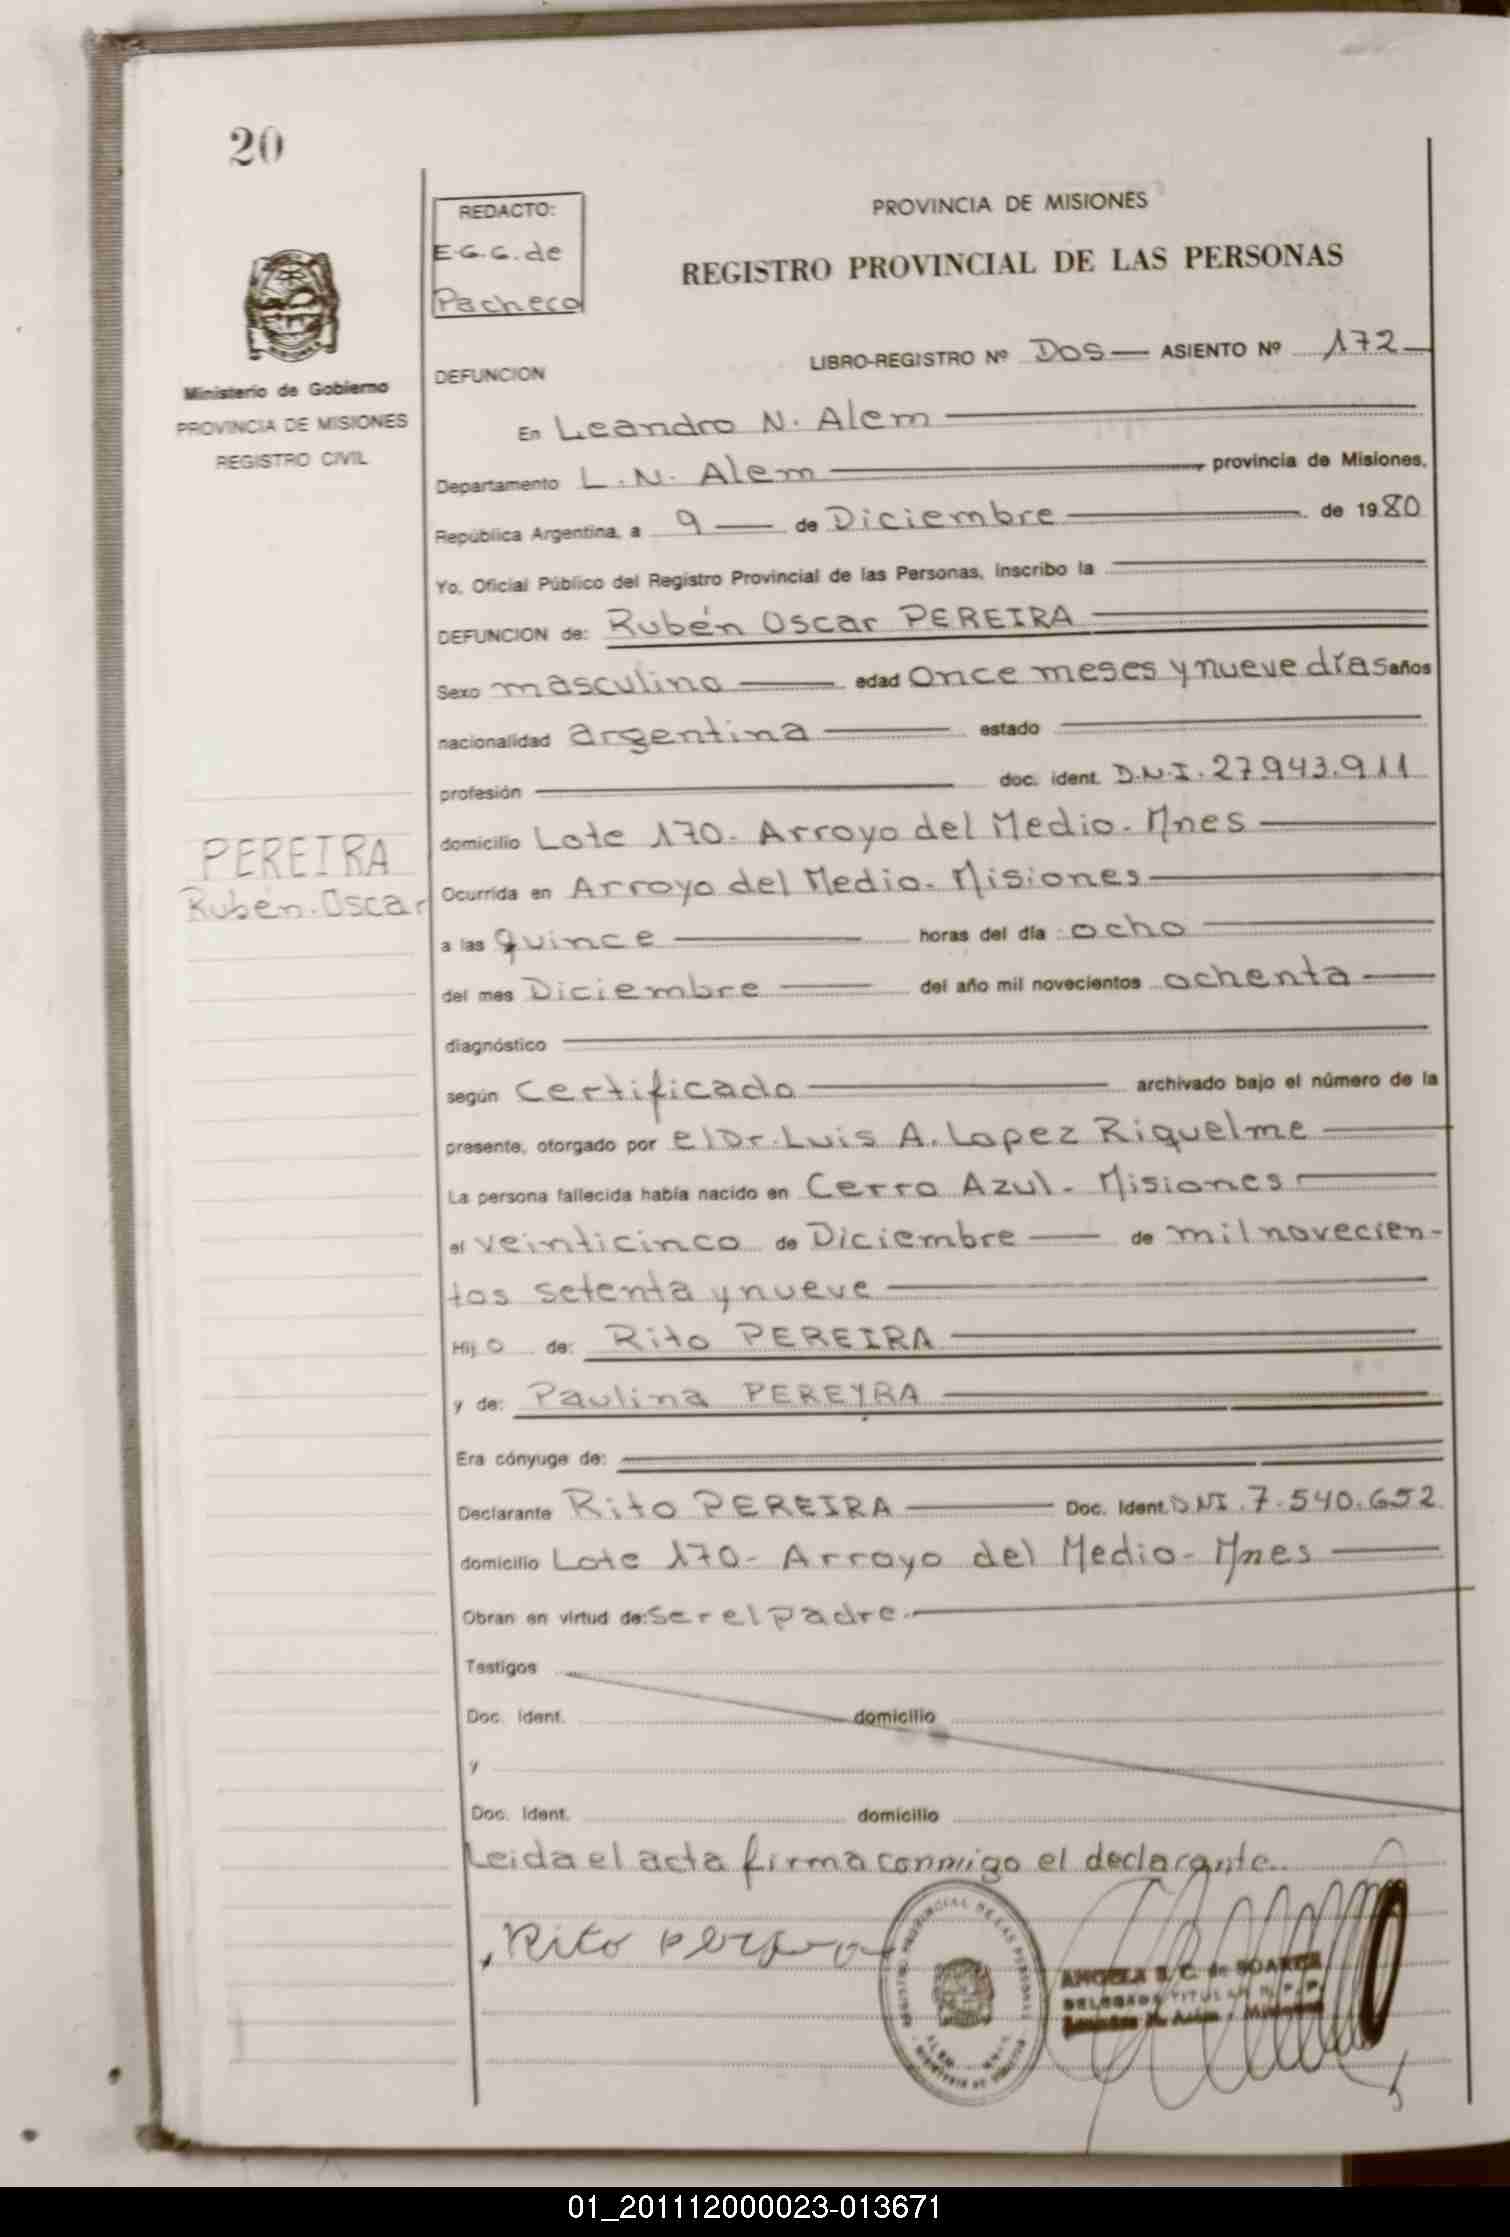 20
REDACTO:
E.G.G. de
Pacheco
PROVINCIA DE MISIONES
REGISTRO PROVINCIAL DE LAS PERSONAS
Ministerio de Gobierno
PROVINCIA DE MISIONES
REGISTRO CIVIL
LIBRO-REGISTRO Nº DOS ASIENTO Nº 172
DEFUNCION
En Leandro N. Alem
Departamento L. N. Alem, provincia de Misiones,
República Argentina, a 9 de Diciembre de 1980
Yo, Oficial Público del Registro Provincial de las Personas, inscribo la
DEFUNCION de: Rubén Oscar PEREIRA
Sexo masculino edad Once meses y nueve días años
nacionalidad argentina estado
profesión doc. ident. D.N.I. 27.943.911
domicilio Lote 170- Arroyo del Medio- Mnes
PEREIRA
Rubén. Oscar
Ocurrida en Arroyo del Medio. Misiones
a las quince horas del día ocho
del mes Diciembre del año mil novecientos ochenta
diagnóstico
según certificado archivado bajo el número de la
presente, otorgado por el Dr. Luis A. Lopez Riquelme
La persona fallecida había nacido en Cerro Azul- Misiones
el veinticinco de Diciembre de mil novecien-
tos setenta y nueve
Hijo de: Rito PEREIRA
y de: Paulina PEREYRA
Era cónyuge de:
Declarante Rito PEREIRA Doc. Ident. DNI. 7.540.652
domicilio Lote 170- Arroyo del Medio- Mnes
Obran en virtud de: ser el padre.
Testigos
Doc. Ident. domicilio
y
Doc. Ident. domicilio
Leida el acta firma conmigo el declarante.
Rito
REGISTRO PROVINCIAL DE LAS PERSONAS
ANGELA S. C. de SOAREZ
DELEGADA TITULAR R. P. P.
Leandro N. Alem - Misiones
01_201112000023-013671